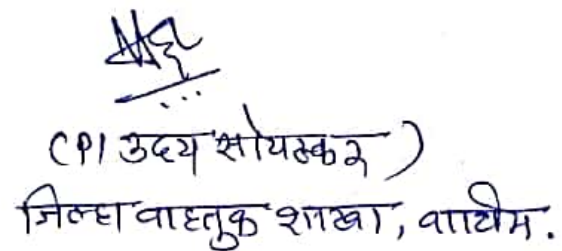 (PI उदय सोयस्कर)
जिल्हा वाहतुक शाखा, वाशीम.